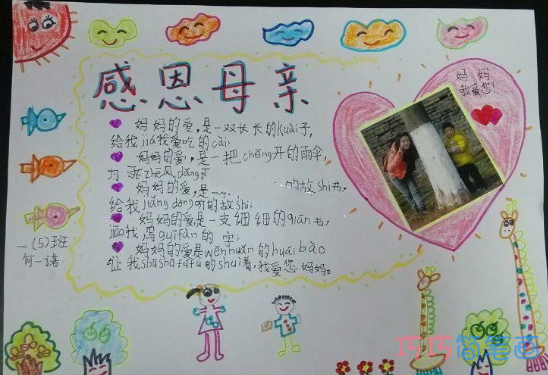 感恩母亲
妈妈
我爱您!
妈妈的爱,是一双长长的kuài子,
给我jiā我爱吃的cài.
妈妈的爱,是一把chēng开的雨伞,
为
妈妈的爱,是一 的故shi书,
给我jiǎng dòng听的故shi.
妈妈的爱是一支细细的qiān书,
jiāo我写guī fàn的字.
妈妈的爱是wēn nuǎn的huái bào
让我shū shū fú fú的shuì着,我爱您妈妈。
一(5)班
何一诺
巧巧简笔画